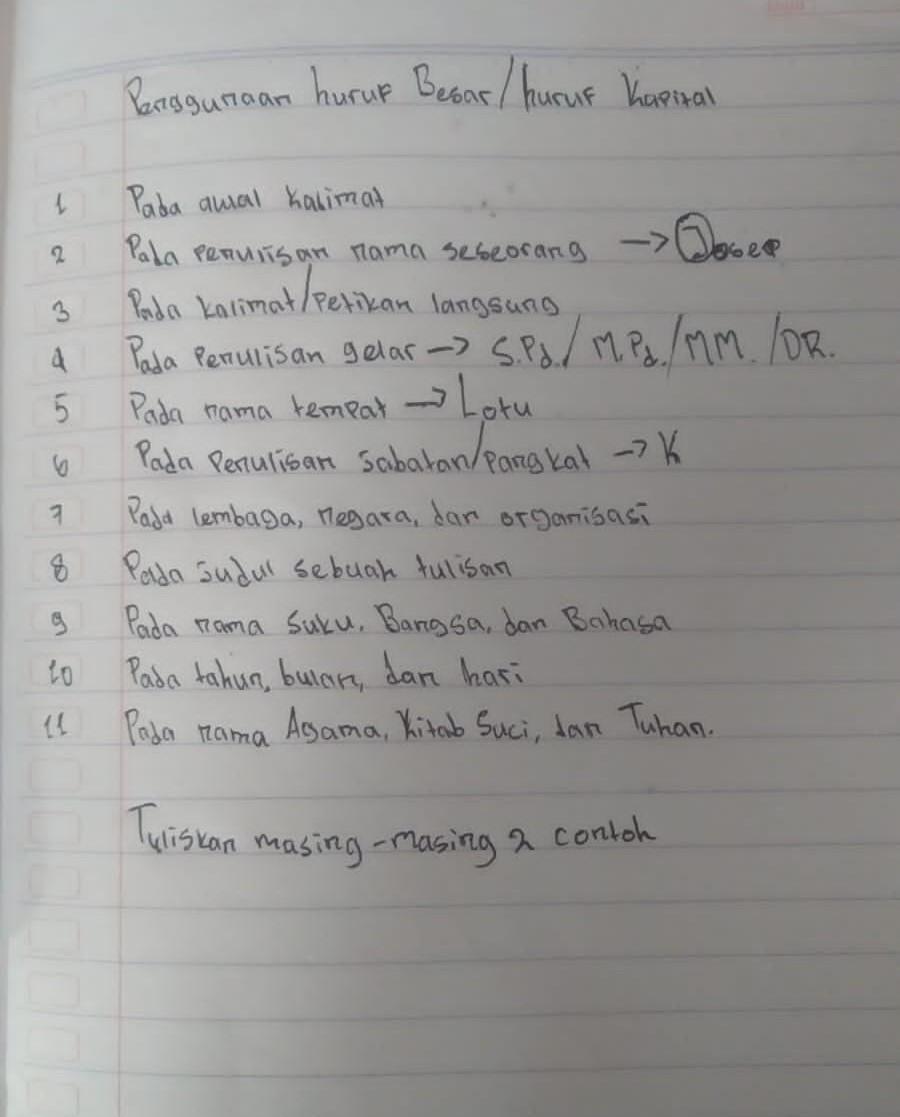 Penggunaan huruf Besar/huruf Kapital
1 Pada awal kalimat
2 Pada penulisan nama seseorang → Josep
3 Pada kalimat/petikan langsung
4 Pada Penulisan gelar → S.Pd./M.Pd./MM./DR.
5 Pada nama tempat → Lotu
6 Pada Penulisan Jabatan/pangkat → K
7 Pada lembaga, negara, dan organisasi
8 Pada Judul sebuah tulisan
9 Pada nama Suku, Bangsa, dan Bahasa
10 Pada tahun, bulan, dan hari
11 Pada nama Agama, Kitab Suci, dan Tuhan.
Tuliskan masing-masing 2 contoh